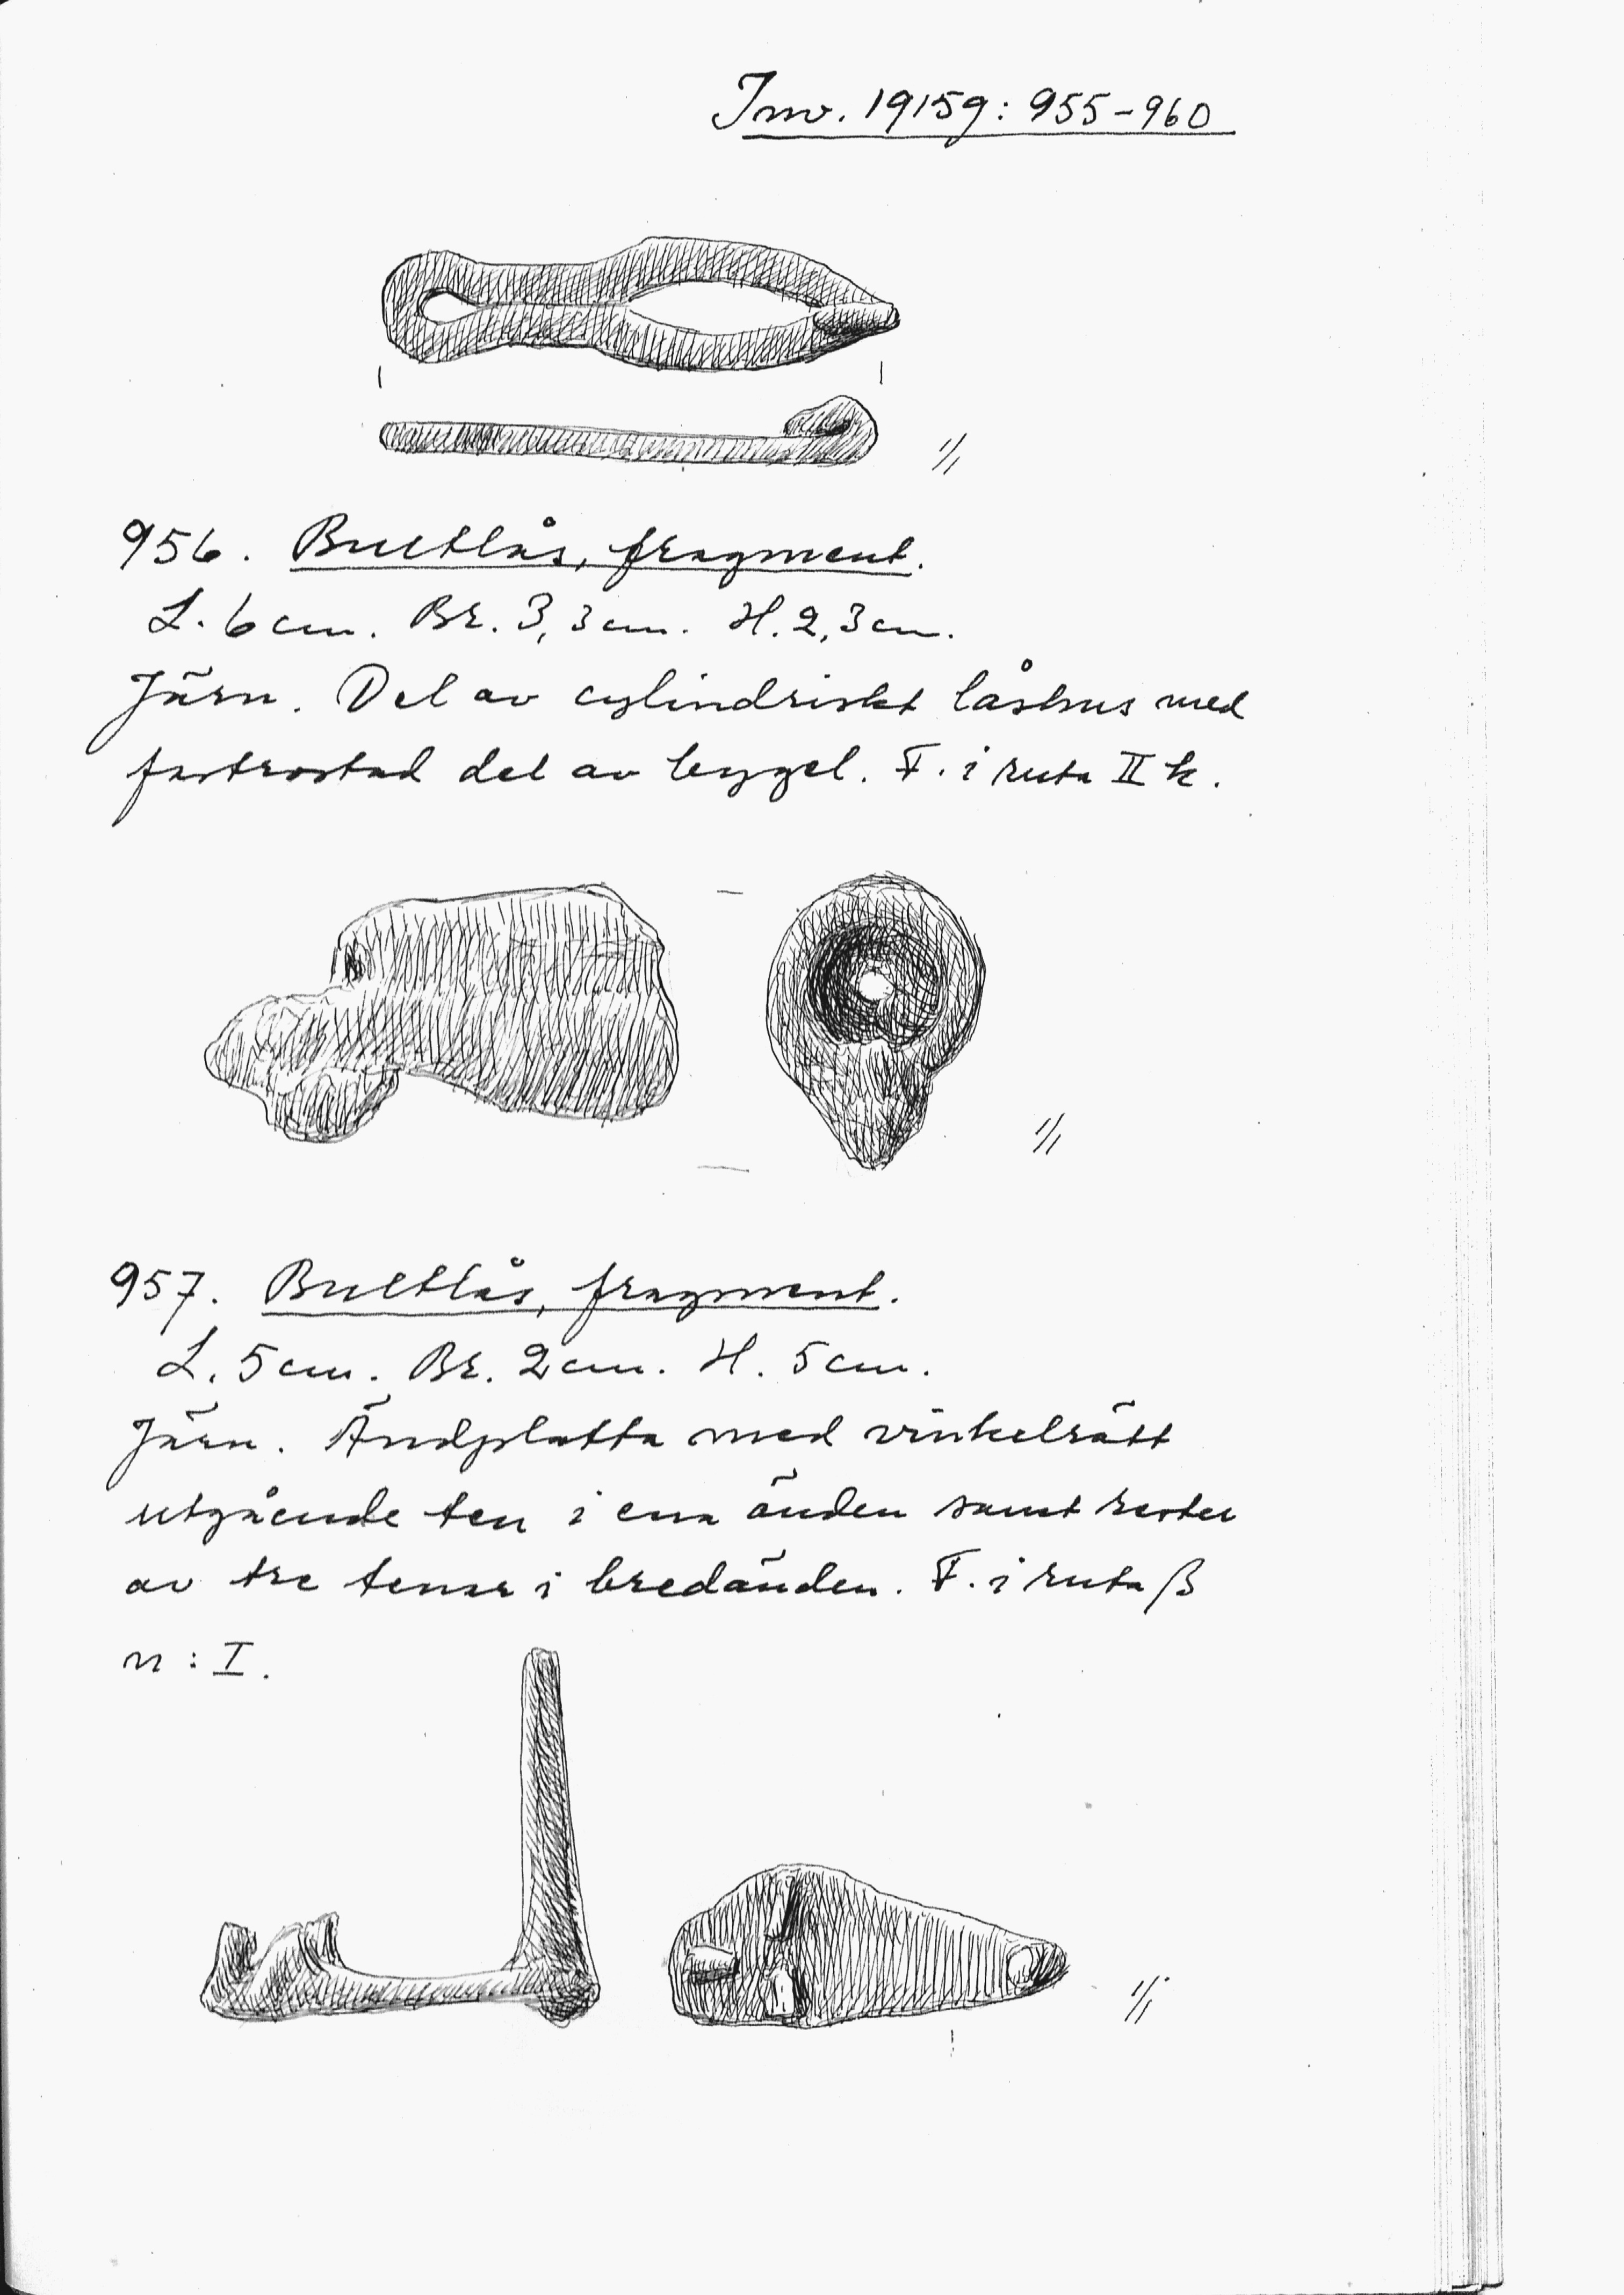 Inv. 19159: 955-960
1/1
956. Bultlås, fragment.
L. 6 cm. Br. 3,3 cm. H. 2,3 cm.
Järn. Del av cylindriskt låshus med
fastrostad del av bygel. F. i ruta II k.
1/1
957. Bultlås, fragment.
L. 5 cm. Br. 2 cm. H. 5 cm.
Järn. Ändplatta med vinkelrätt
utgående ten i ena änden samt rester
av tre tenar i bredänden. F. i ruta β
n : I.
1/1